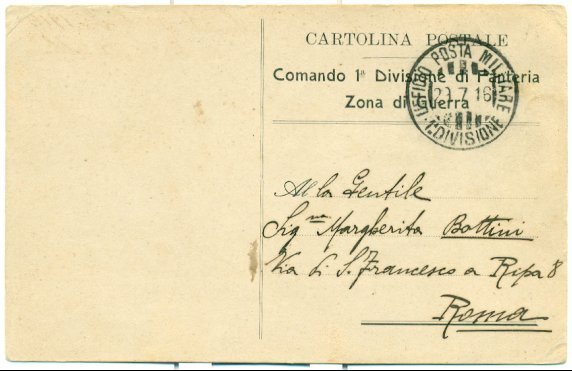 CARTOLINA POSTALE
Comando 1ª Divisione di Fanteria
Zona di Guerra
UFFICIO POSTA MILITARE
7.16
1ª DIVISIONE
Alla Gentile
Signa Margherita Bottini
Via di S. Francesco a Ripa 8
Roma